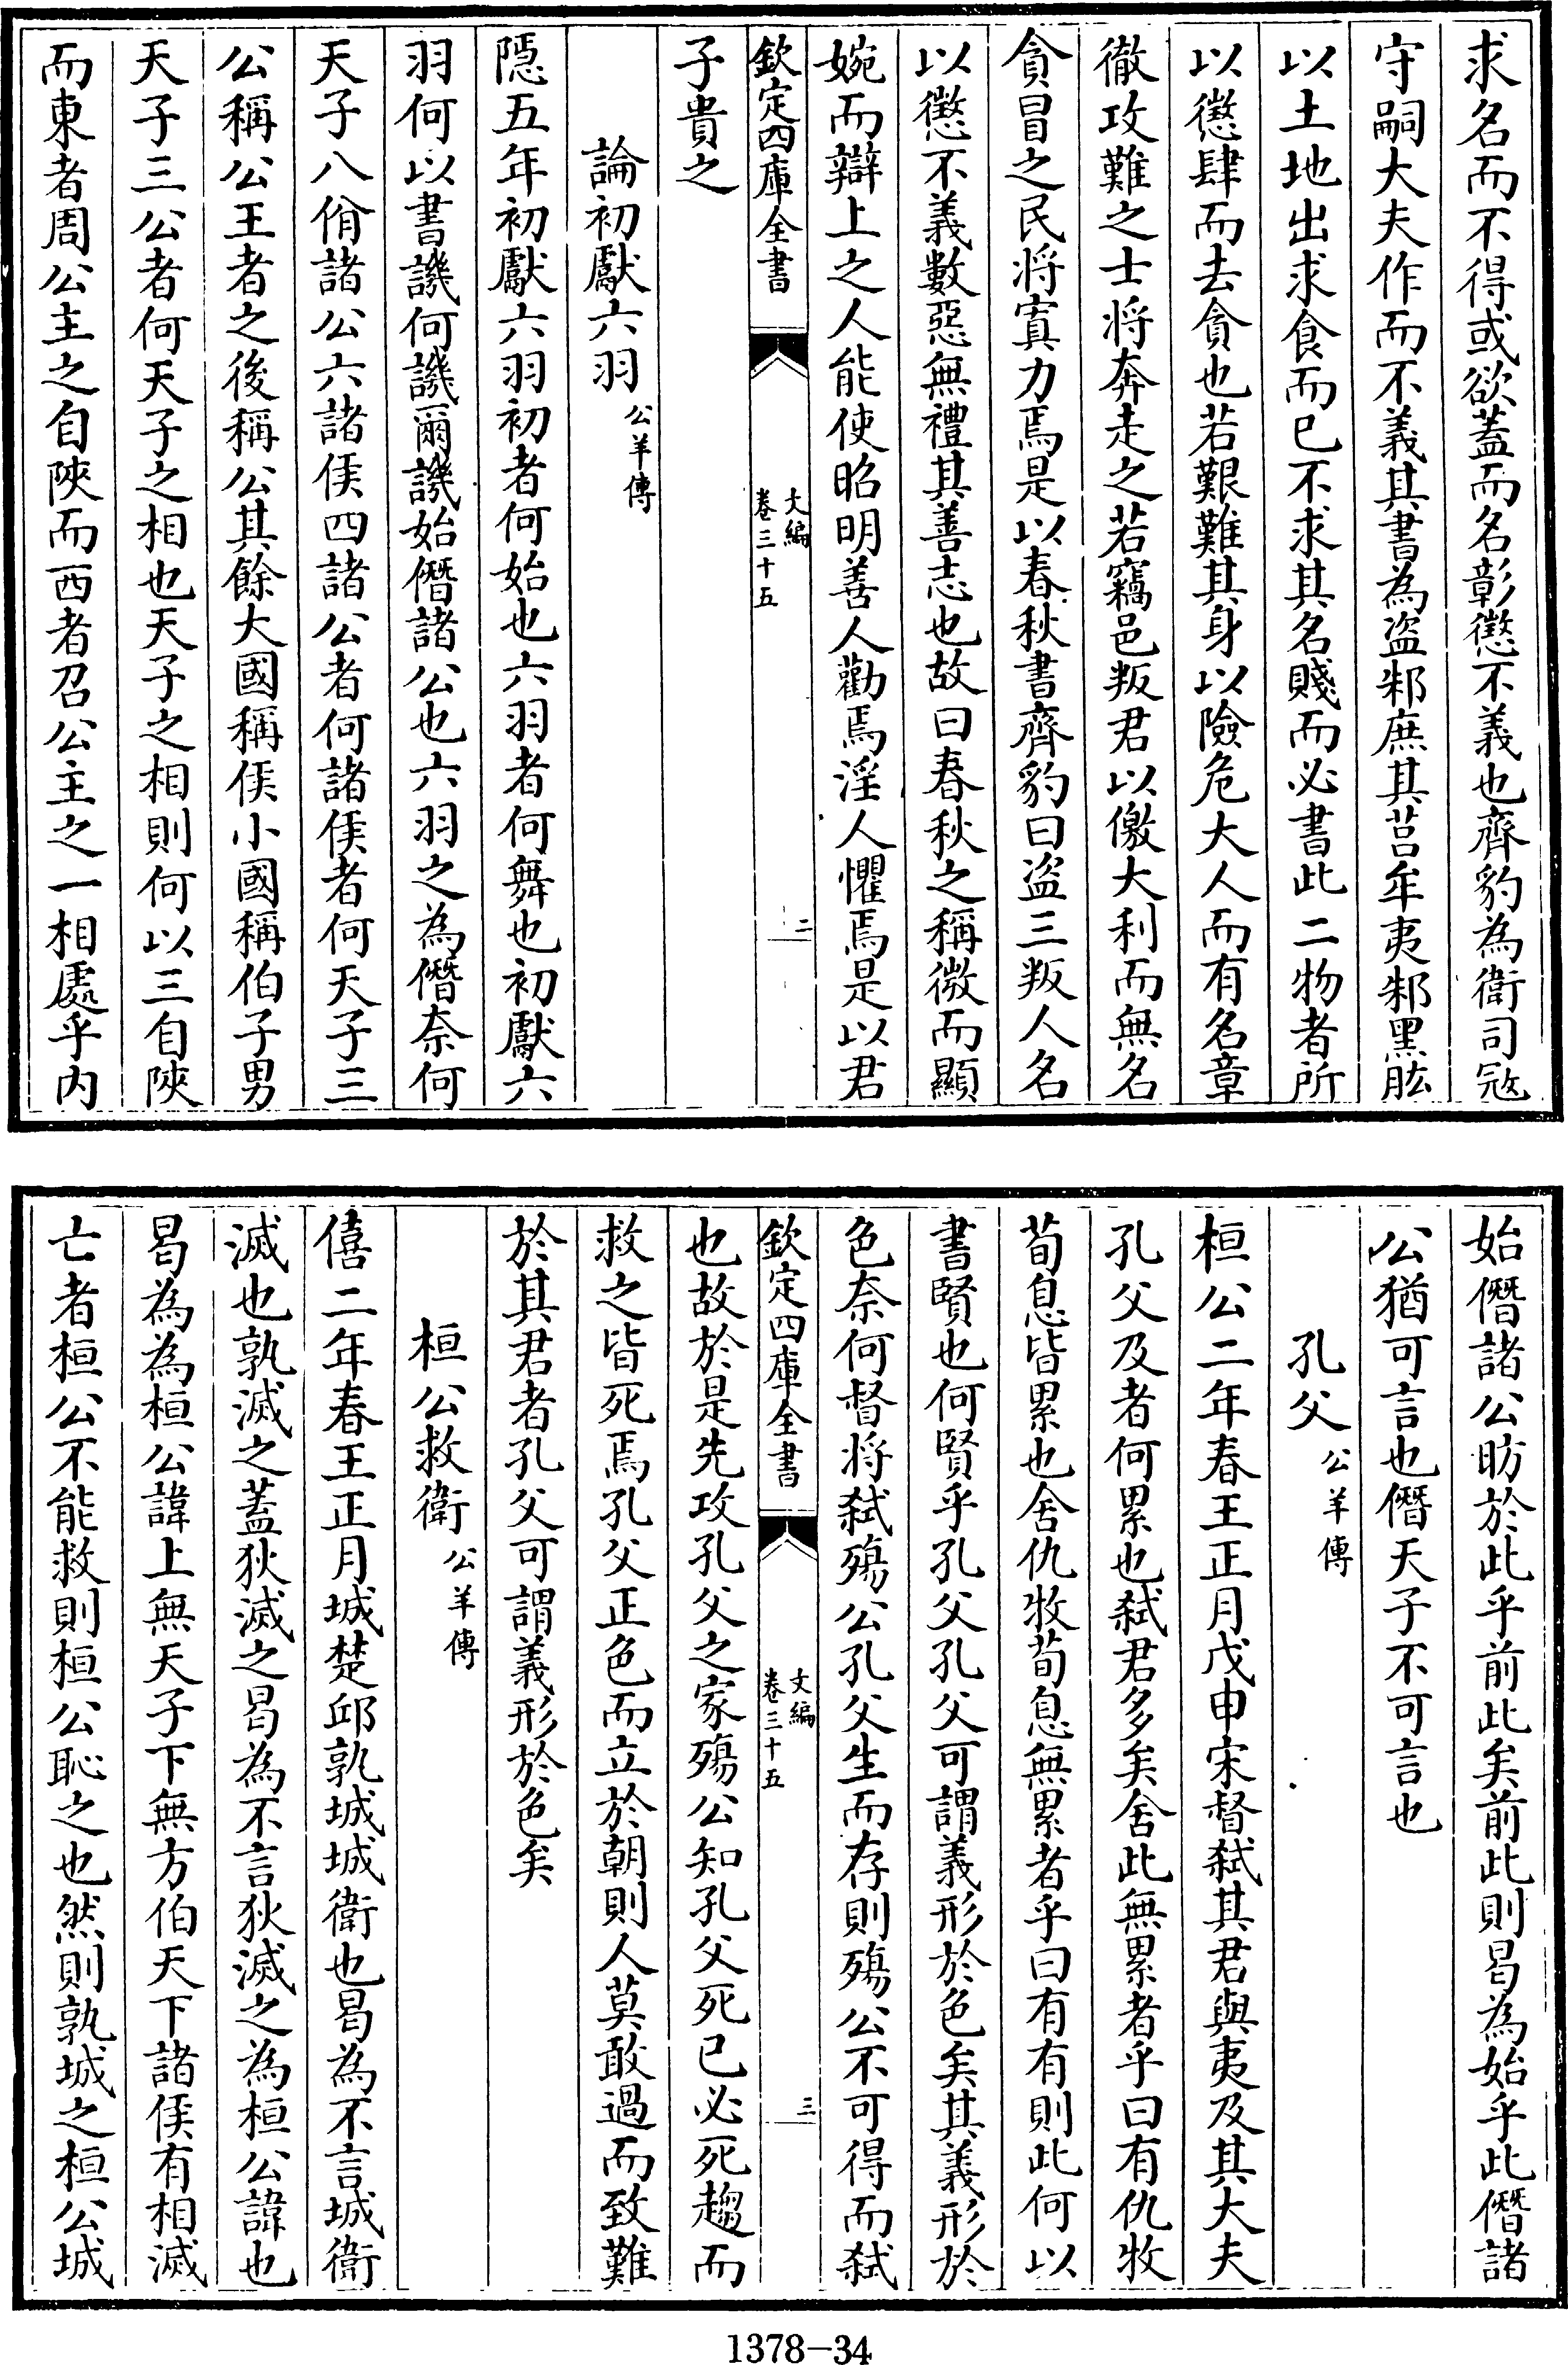 求名而不得或欲蓋而名彰懲不義也齊豹為衛司寇
守嗣大夫作而不義其書為盜邾庶其莒牟夷邾黑肱
以土地出求食而已不求其名賤而必書此二物者所
以懲肆而去貪也若艱難其身以險危大人而有名章
徹攻難之士將奔走之若竊邑叛君以儌大利而無名
貪冒之民將寘力焉是以春秋書齊豹曰盜三叛人名
以懲不義數惡無禮其善志也故曰春秋之稱微而顯
婉而辯上之人能使昭明善人勸焉淫人懼焉是以君
欽定四庫全書
文編
卷三十五
二
子貴之
論初獻六羽公羊傳
隱五年初獻六羽初者何始也六羽者何舞也初獻六
羽何以書譏何譏爾譏始僭諸公也六羽之為僭奈何
天子八佾諸公六諸侯四諸公者何諸侯者何天子三
公稱公王者之後稱公其餘大國稱侯小國稱伯子男
天子三公者何天子之相也天子之相則何以三自陝
而東者周公主之自陝而西者召公主之一相處乎內
始僭諸公昉於此乎前此矣前此則曷為始乎此僭諸
公猶可言也僭天子不可言也
孔父公羊傳
桓公二年春王正月戊申宋督弒其君與夷及其大夫
孔父及者何累也弒君多矣舍此無累者乎曰有仇牧
荀息皆累也舍仇牧荀息無累者乎曰有有則此何以
書賢也何賢乎孔父孔父可謂義形於色矣其義形於
色奈何督將弒殤公孔父生而存則殤公不可得而弒
欽定四庫全書
文編
卷三十五
三
也故於是先攻孔父之家殤公知孔父死已必死趨而
救之皆死焉孔父正色而立於朝則人莫敢過而致難
於其君者孔父可謂義形於色矣
桓公救衛公羊傳
僖二年春王正月城楚邱孰城城衛也曷為不言城衛
滅也孰滅之蓋狄滅之曷為不言狄滅之為桓公諱也
曷為為桓公諱上無天子下無方伯天下諸侯有相滅
亡者桓公不能救則桓公恥之也然則孰城之桓公城
1378-34